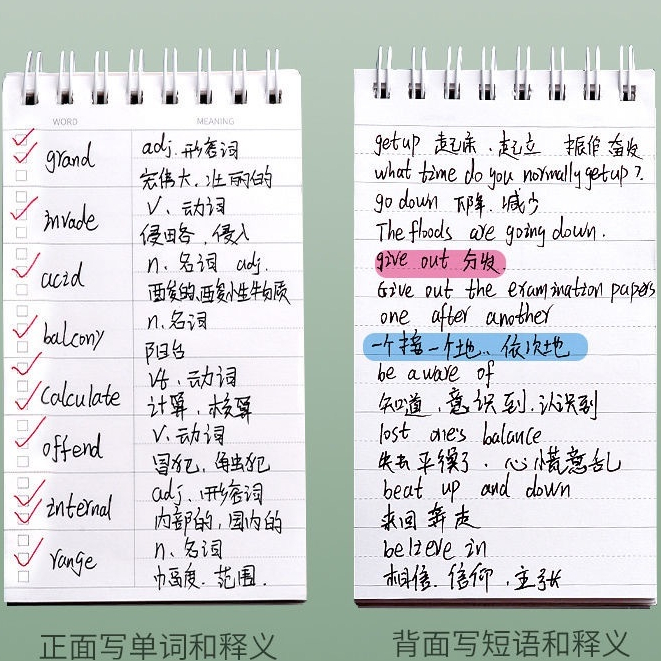 WORD MEANING
grand adj. 形容词
宏伟大,壮丽的
invade v. 动词
侵略,侵入
acid n. 名词 adj.
酸的,酸性物质
balcony n. 名词
阳台
calculate vt. 动词
计算,核算
offend v. 动词
冒犯,触犯
internal adj. 形容词
内部的,国内的
range n. 名词
幅度.范围.
正面写单词和释义
get up 起床.起立 振作奋发
what time do you normally get up?
go down 下降.减少
The floods are going down.
give out 分发.
Give out the examination papers
one after another
一个接一个地..依次地
be aware of
知道,意识到.认识到
lost one's balance
失去平衡了.心慌意乱
beat up and down
来回奔走
believe in
相信.信仰,主张
背面写短语和释义